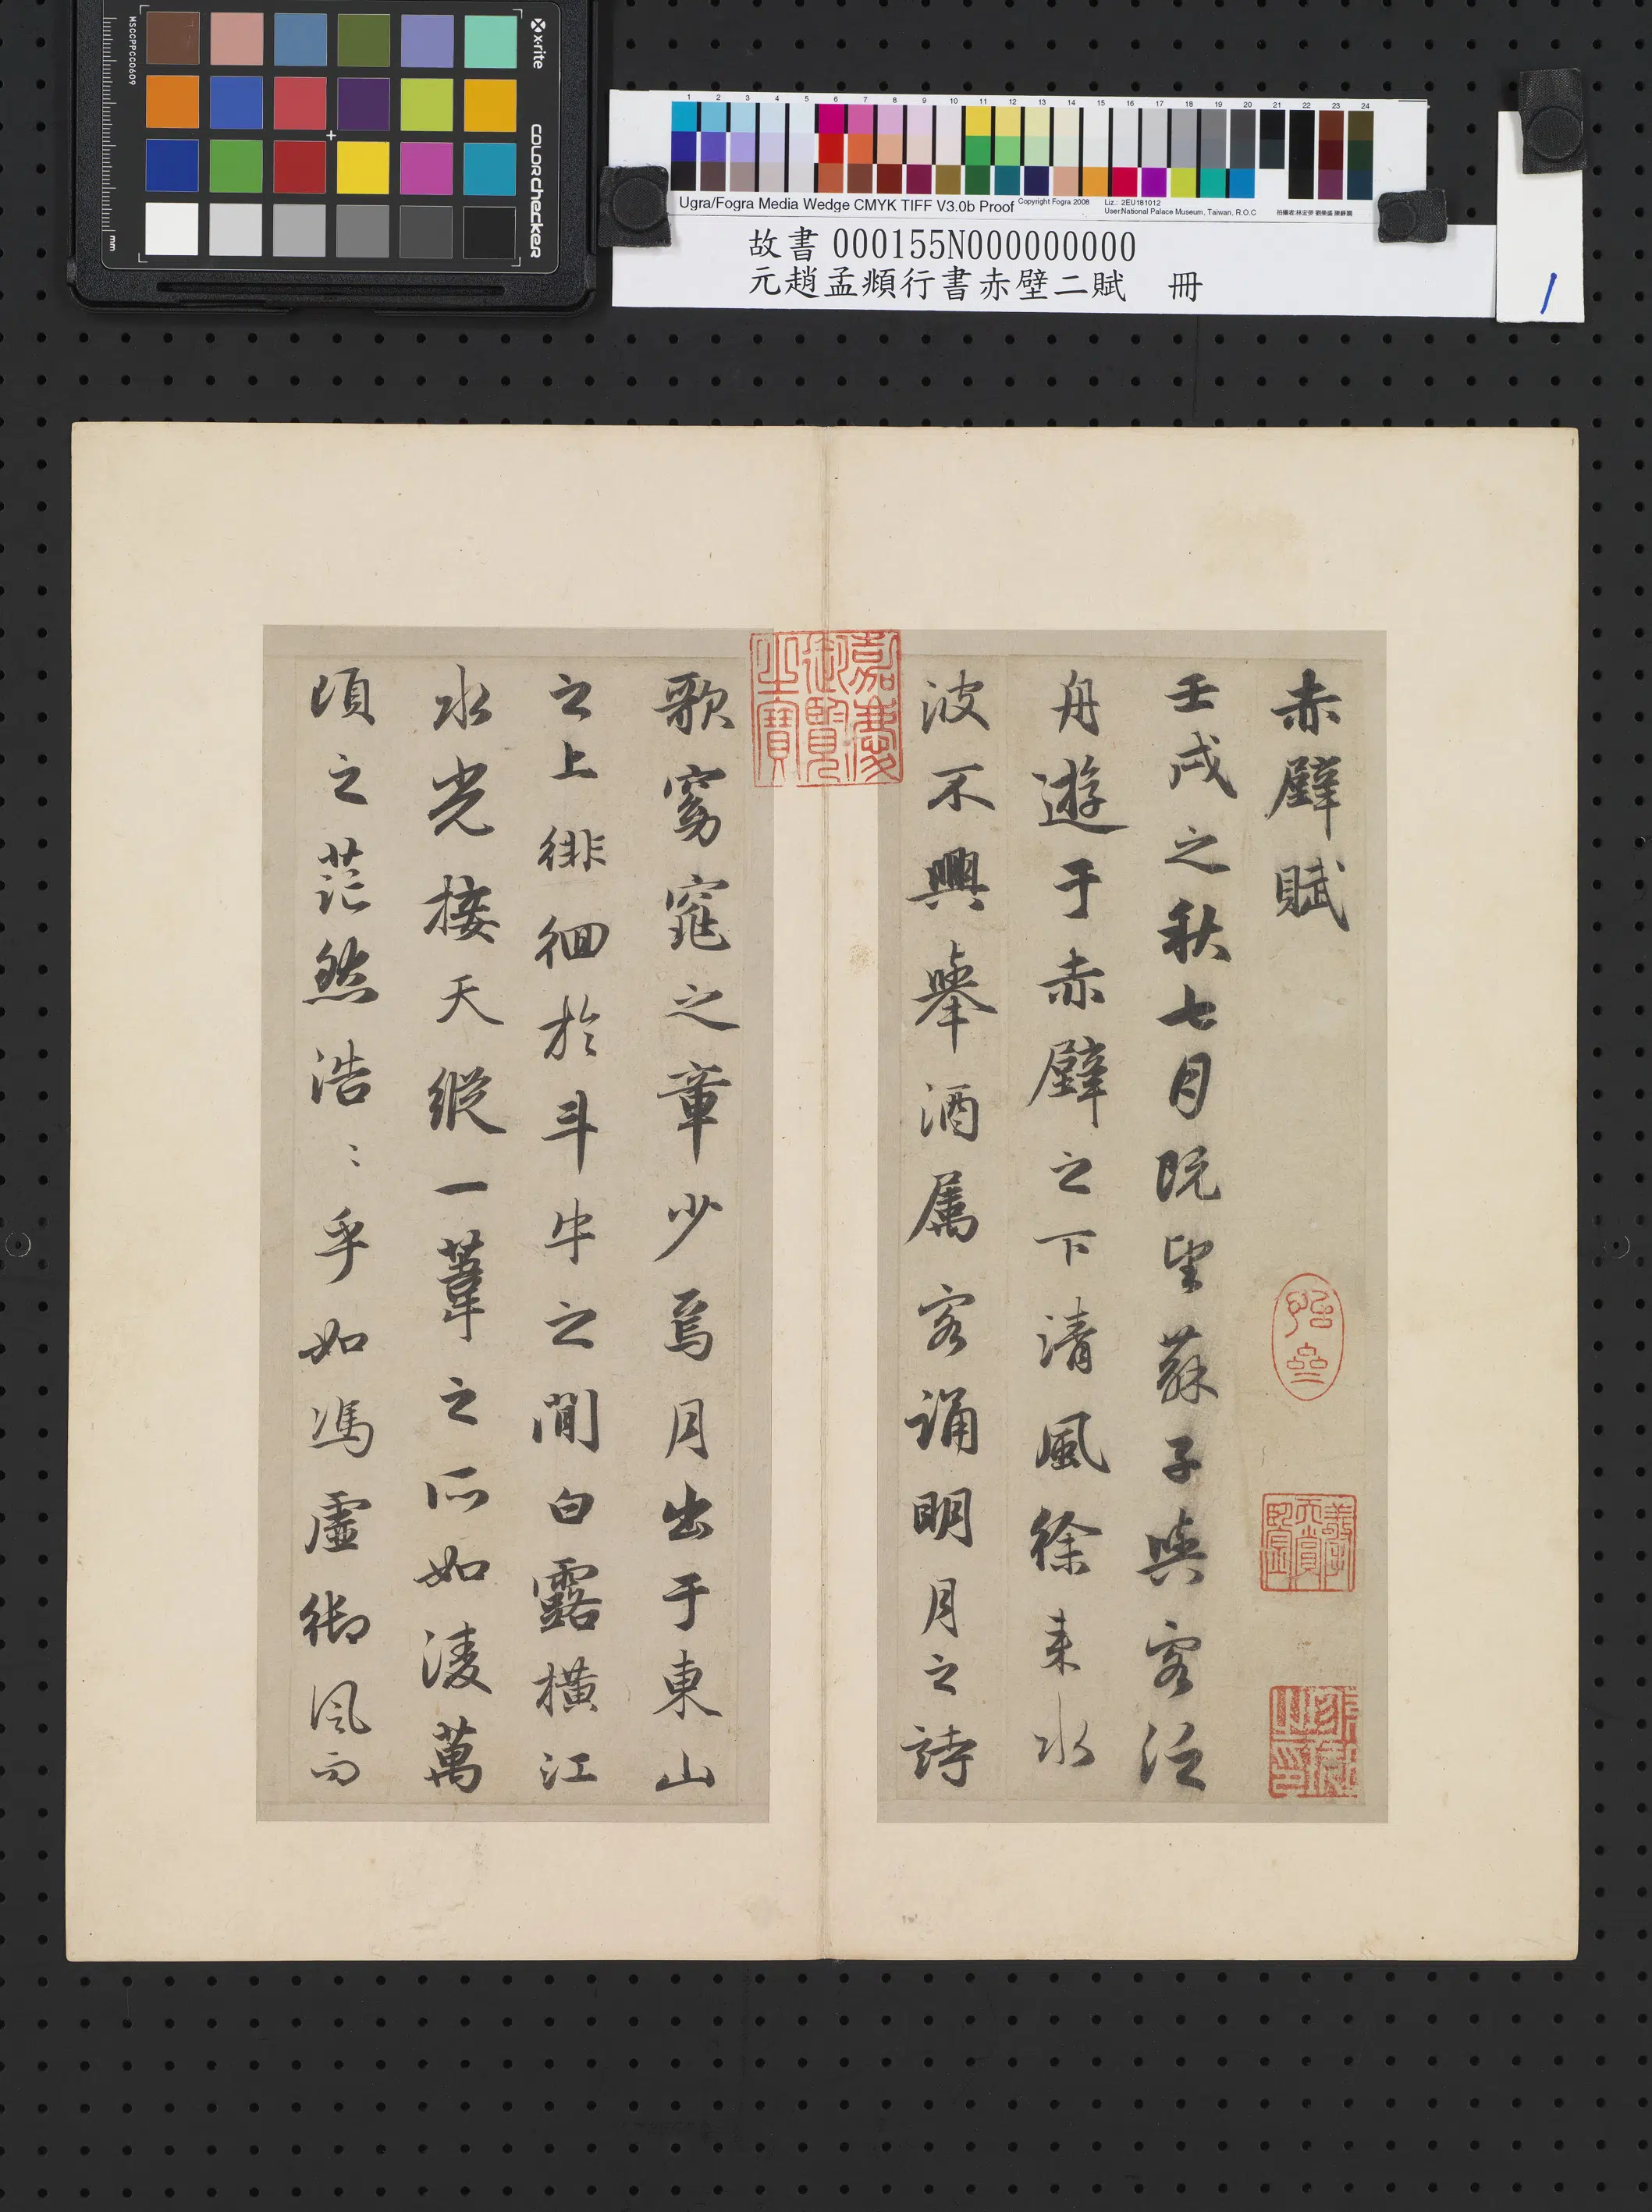 MSCCPPCC0609
x-rite
colorchecker
mm
1 2 3 4 5 6 7 8 9 10 11 12 13 14 15 16 17 18 19 20 21 22 23 24
Ugra/Fogra Media Wedge CMYK TIFF V3.0b Proof
Copyright Fogra 2008
Liz.: 2EU181012
User:National Palace Museum, Taiwan, R.O.C
故書 000155N000000000
元趙孟頫行書赤壁二賦 冊
1
赤壁賦
壬戌之秋七月既望蘇子與客泛
舟遊于赤壁之下清風徐来水
波不興舉酒属客誦明月之詩
嘉慶御覽之寶
歌窈窕之章少焉月出于東山
之上徘徊於斗牛之間白露橫江
水光接天縱一葦之所如凌萬
頃之茫然浩〻乎如馮虛御風而